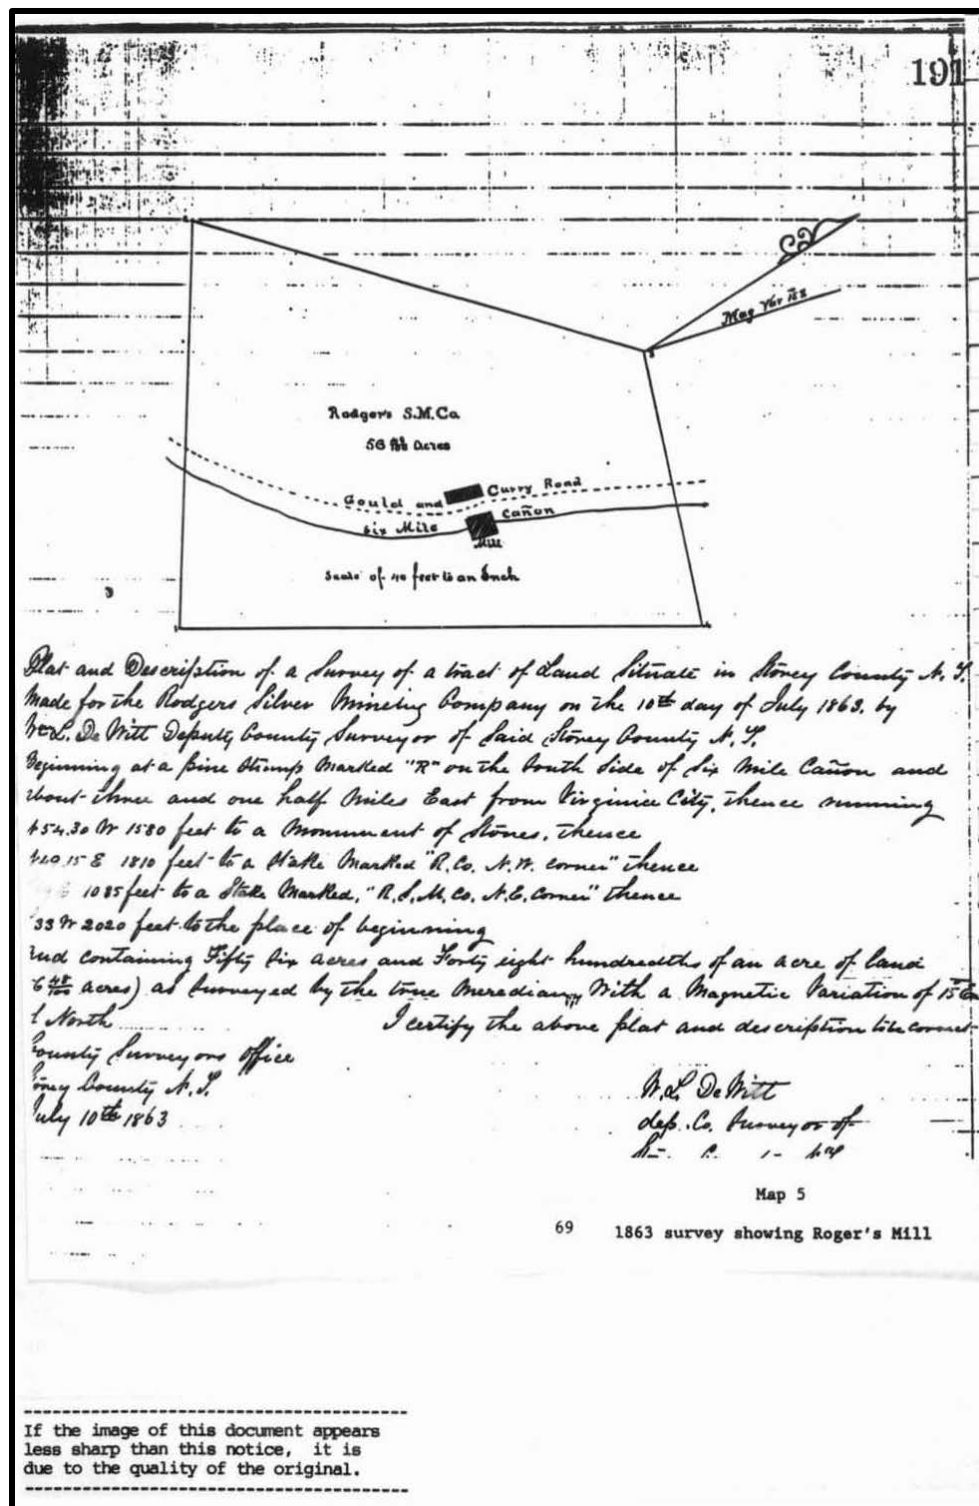 191
Mag Var
Rodgers S.M.Co.
56 Acres
Gould and Curry Road
Six Mile Cañon
Mill
Scale of 40 feet to an Inch
Plat and Description of a Survey of a tract of Land Situate in Storey County N. T.
Made for the Rodgers Silver Mineing Company on the 10th day of July 1863. by
W.L. De Witt Deputy County Surveyor of Said Storey County N. T.
Beginning at a pine Stump Marked "R" on the South Side of Six Mile Cañon and
about three and one half Miles East from Virginia City, thence running
54.30 W 1580 feet to a Monument of Stones. thence
E 1810 feet to a Stake Marked "R. Co. N.W. corner" thence
1085 feet to a Stake Marked, "R.S.M. Co. N.E. Corner" thence
33 W 2020 feet to the place of beginning
and containing Fifty Six acres and Forty eight hundredths of an acre of land
6 48/100 acres) as Surveyed by the true Meredian, With a Magnetic Variation of 15
North I certify the above plat and description to be correct
County Surveyors Office
Storey County N. T.
July 10th 1863
W.L. De Witt
dep. Co. Surveyor of
Map 5
69 1863 survey showing Roger's Mill
If the image of this document appears
less sharp than this notice, it is
due to the quality of the original.